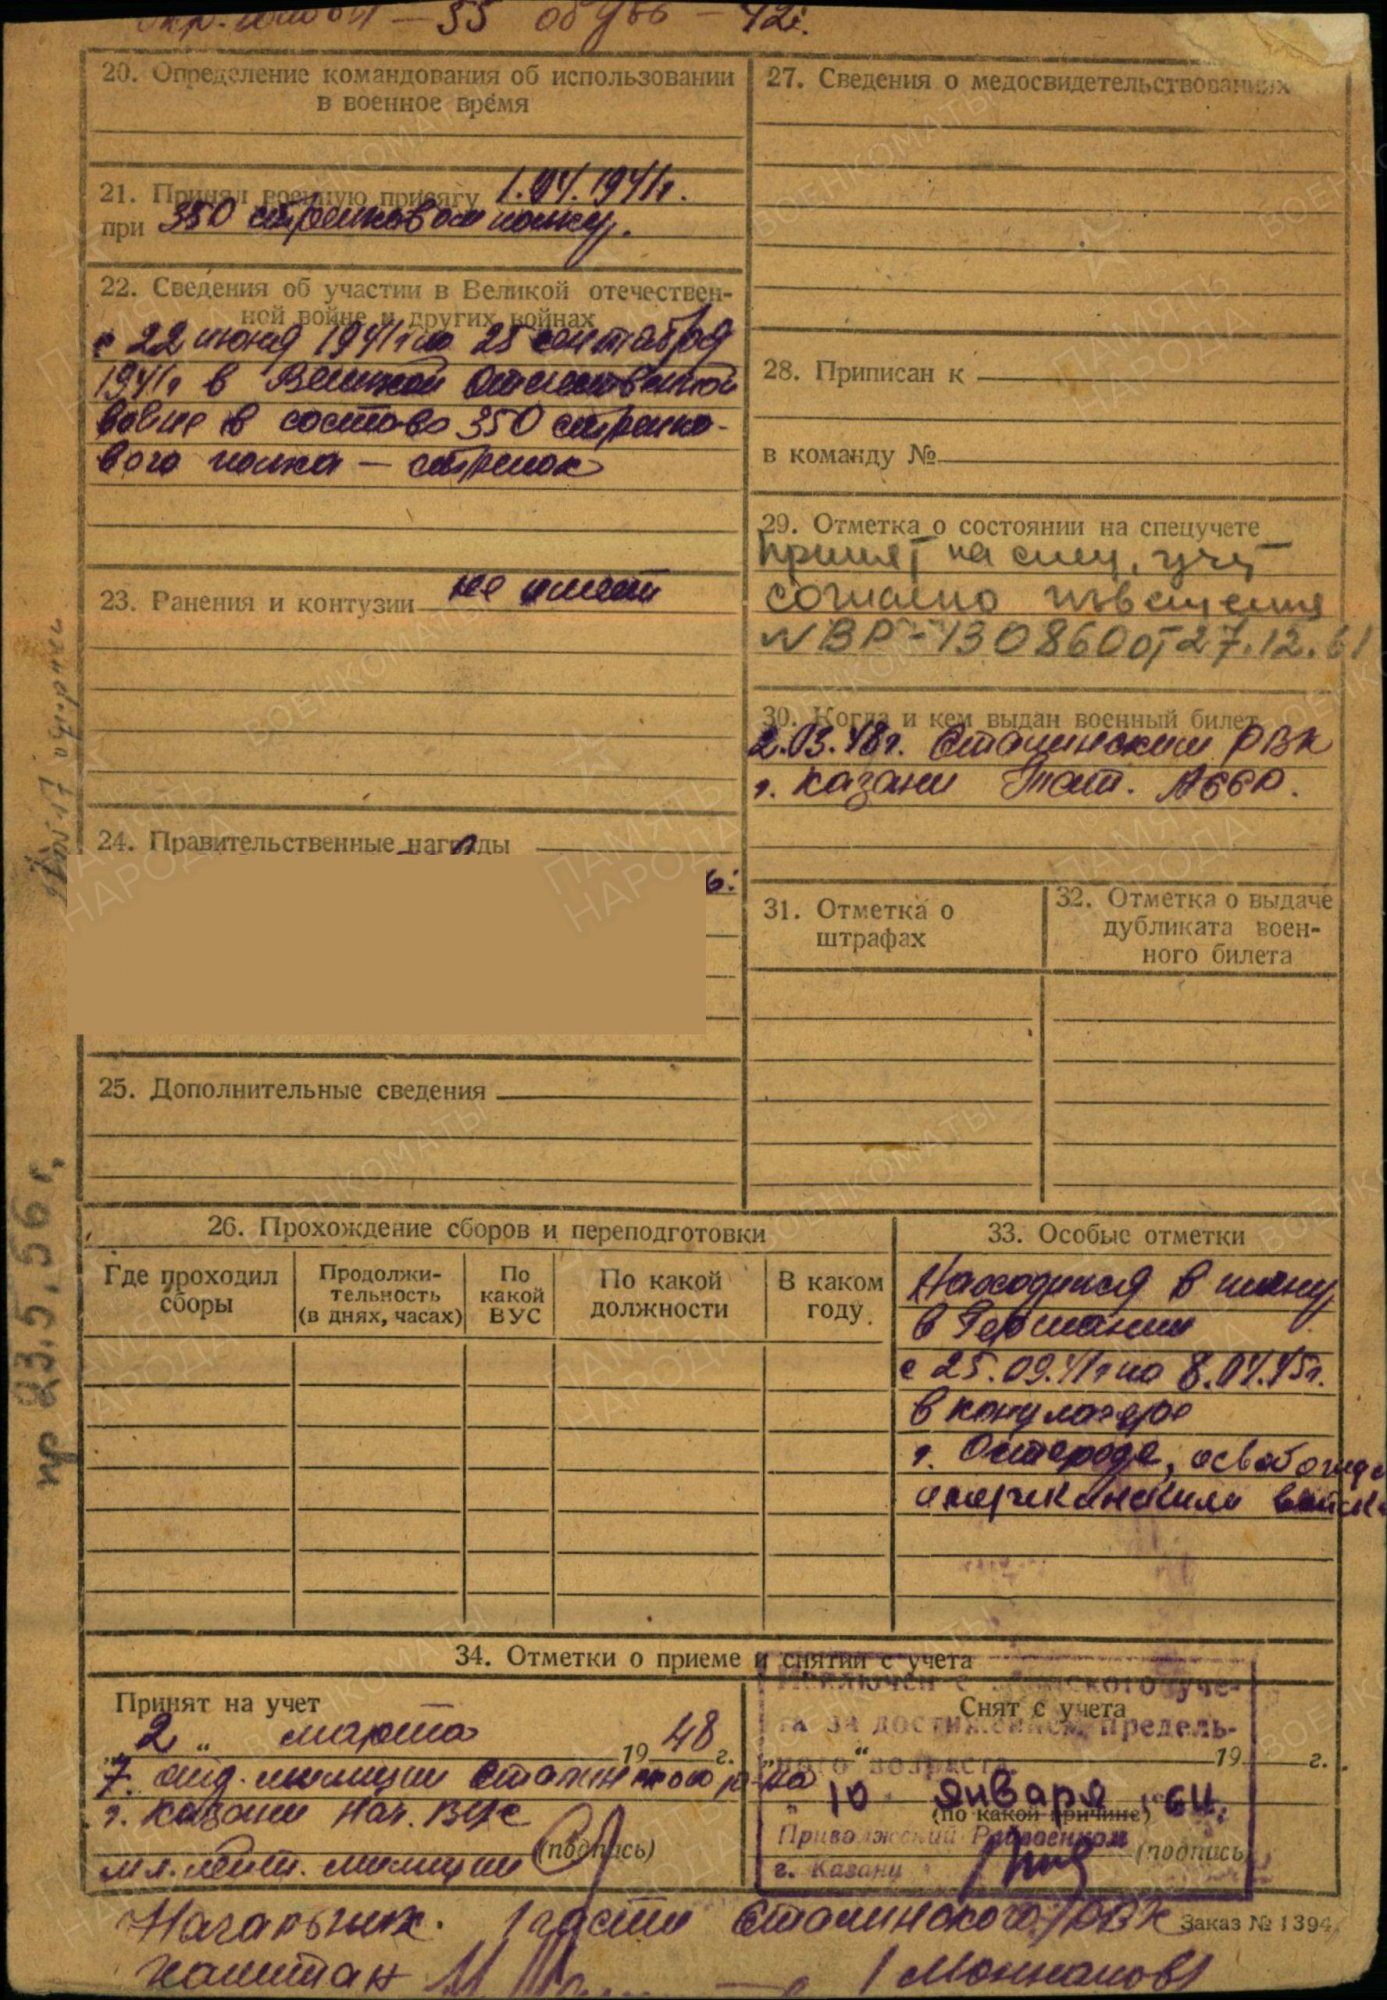 окр. головы — 55 обувь — 42.
20. Определение командования об использовании
в военное время
21. Принял военную присягу 1.04.1941г.
при 350 стрелковом полку.
22. Сведения об участии в Великой отечествен-
ной войне и других войнах
с 22 июня 1941г по 25 сентября
1941г в Великой Отечественной
войне в составе 350 стрелко-
вого полка — стрелок
23. Ранения и контузии не имеет
24. Правительственные награды
25. Дополнительные сведения
26. Прохождение сборов и переподготовки
Где проходил сборы
Продолжи-
тельность
(в днях, часах)
По
какой
ВУС
По какой
должности
В каком
году
27. Сведения о медосвидетельствованиях
28. Приписан к
в команду №
29. Отметка о состоянии на спецучете
принят на спец. учет
согласно извещения
№ ВР-130860 от 27.12.61
30. Когда и кем выдан военный билет
2.03.48г. Сталинским РВК
г. Казани Тат. АССР.
31. Отметка о
штрафах
32. Отметка о выдаче
дубликата воен-
ного билета
33. Особые отметки
Находился в плену
в Германии
с 25.09.41г по 8.04.45г.
в концлагере
г. Остероде, освобожд
американскими войска
34. Отметки о приеме и снятии с учета
Принят на учет
„2" марта 1948 г.
7. отд. милиции Сталинского р-на
г. Казани Нач. ВУС
(подпись)
мл. лейт. милиции
Снят с учета
19 г.
(по какой причине)
(подпись
Исключен с воинского уче-
та за достижением предель-
ного возраста.
„10 января 1964
Приволжский Райвоенком
г. Казани
Начальник 1 части Сталинского РВК
капитан
Заказ № 1394.
пр 23.5.56 г.
ПАМЯТЬ
НАРОДА
ВОЕНКОМАТЫ